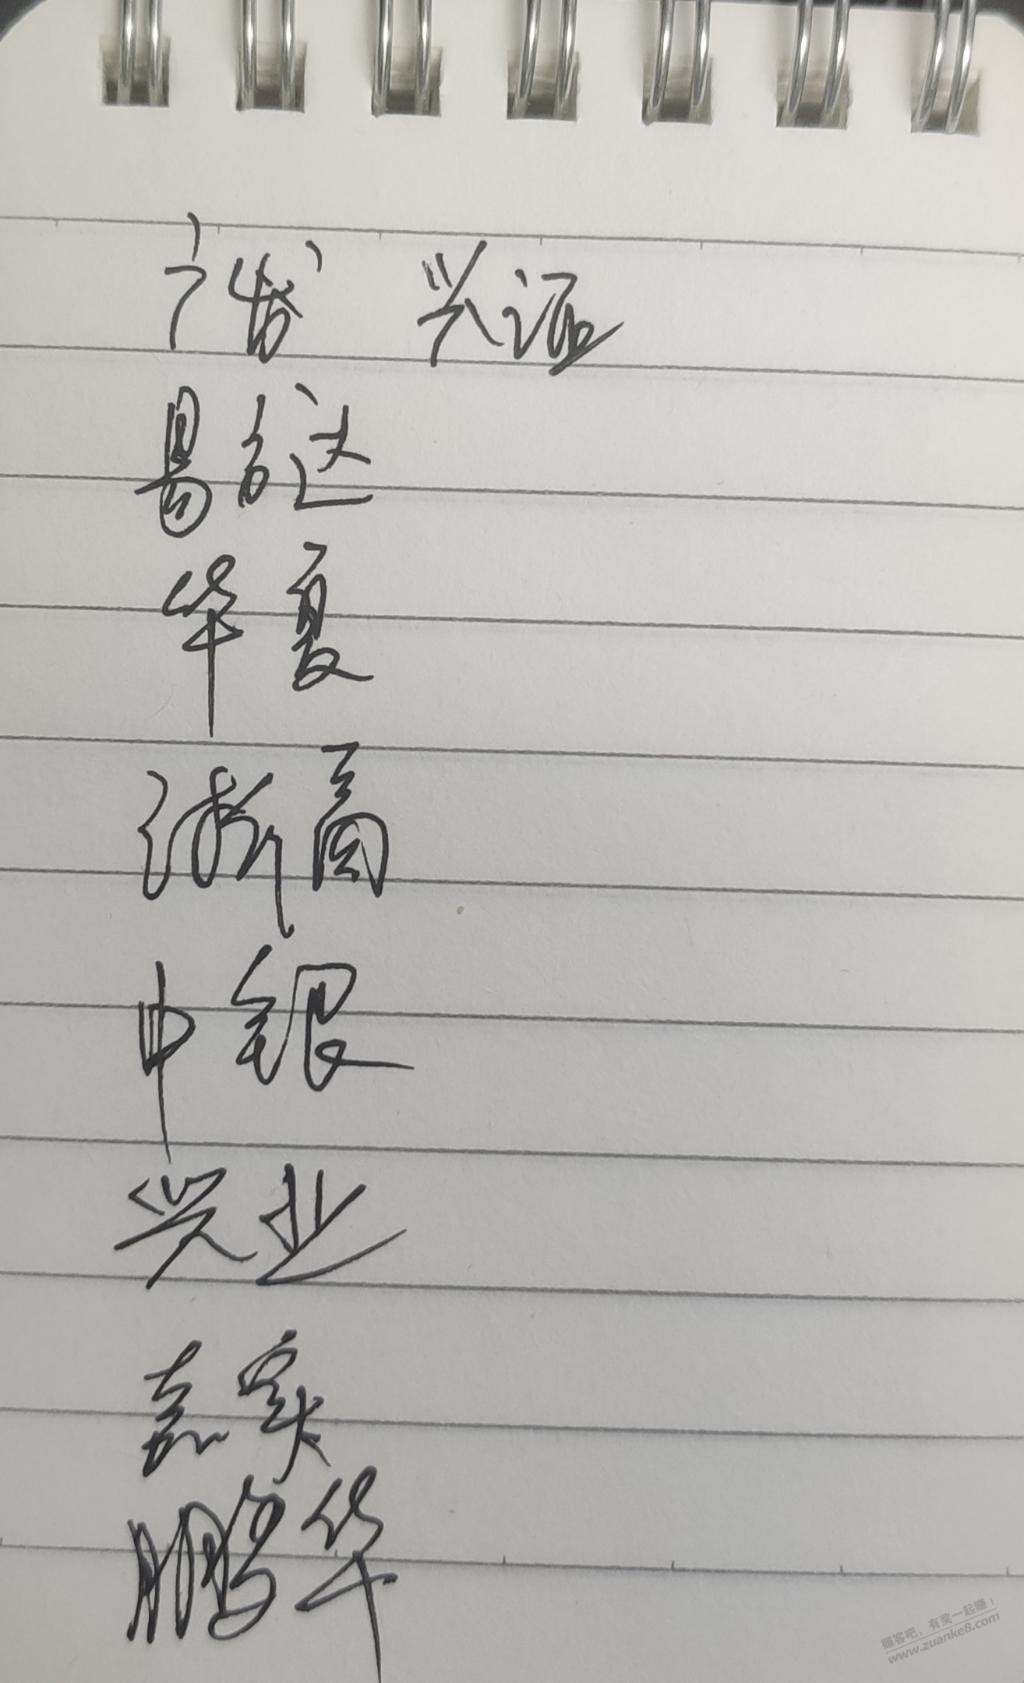 广发 兴证
易方达
华夏
浙商
中银
兴业
嘉实
鹏华
赚客吧，有奖一起赚！
www.zuanke8.com